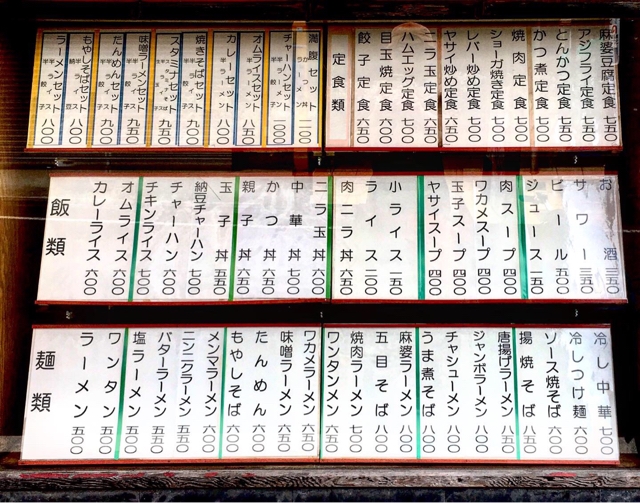 ラーメンセット 八〇〇
もやしそばセット 八〇〇
たんめんセット 九五〇
味噌ラーメンセット 九五〇
スタミナセット 九五〇
焼きそばセット 九〇〇
カレーセット 八〇〇
オムライスセット 八五〇
チャーハンセット
満腹セット
定食類
餃子定食 六五〇
目玉焼定食 六〇〇
ハムエッグ定食 六〇〇
ニラ玉定食 六五〇
ヤサイ炒め定食 六五〇
レバー炒め定食 七五〇
ショーガ焼き定食 七〇〇
焼肉定食 七〇〇
かつ煮定食 七五〇
とんかつ定食 七五〇
アジフライ定食 七五〇
麻婆豆腐定食 七五〇
飯類
カレーライス 六〇〇
オムライス 六五〇
チキンライス 七〇〇
チャーハン 六〇〇
納豆チャーハン 七〇〇
玉子丼 五五〇
親子丼 六五〇
かつ丼 七五〇
中華丼 七〇〇
ニラ玉丼 六〇〇
肉ニラ丼 六五〇
ライス 二〇〇
小ライス 一五〇
ヤサイスープ 四五〇
玉子スープ 四〇〇
ワカメスープ 四〇〇
肉スープ 四〇〇
ジュース 一五〇
ビール 五〇〇
サワー 三五〇
お酒 三五〇
麺類
ラーメン 五〇〇
ワンタン 五〇〇
塩ラーメン 五五〇
バターラーメン 五五〇
ニンニクラーメン 五五〇
メンマラーメン 六〇〇
もやしそば 六〇〇
たんめん 六〇〇
味噌ラーメン 六五〇
ワカメラーメン 六五〇
ワンタンメン 六五〇
焼肉ラーメン 七〇〇
五目そば 八〇〇
麻婆ラーメン 八〇〇
うま煮そば 八〇〇
チャシューメン 八〇〇
ジャンボラーメン 八〇〇
唐揚げラーメン 八〇〇
揚焼そば 八五〇
ソース焼そば 六〇〇
冷しつけ麺 六〇〇
冷し中華 七〇〇